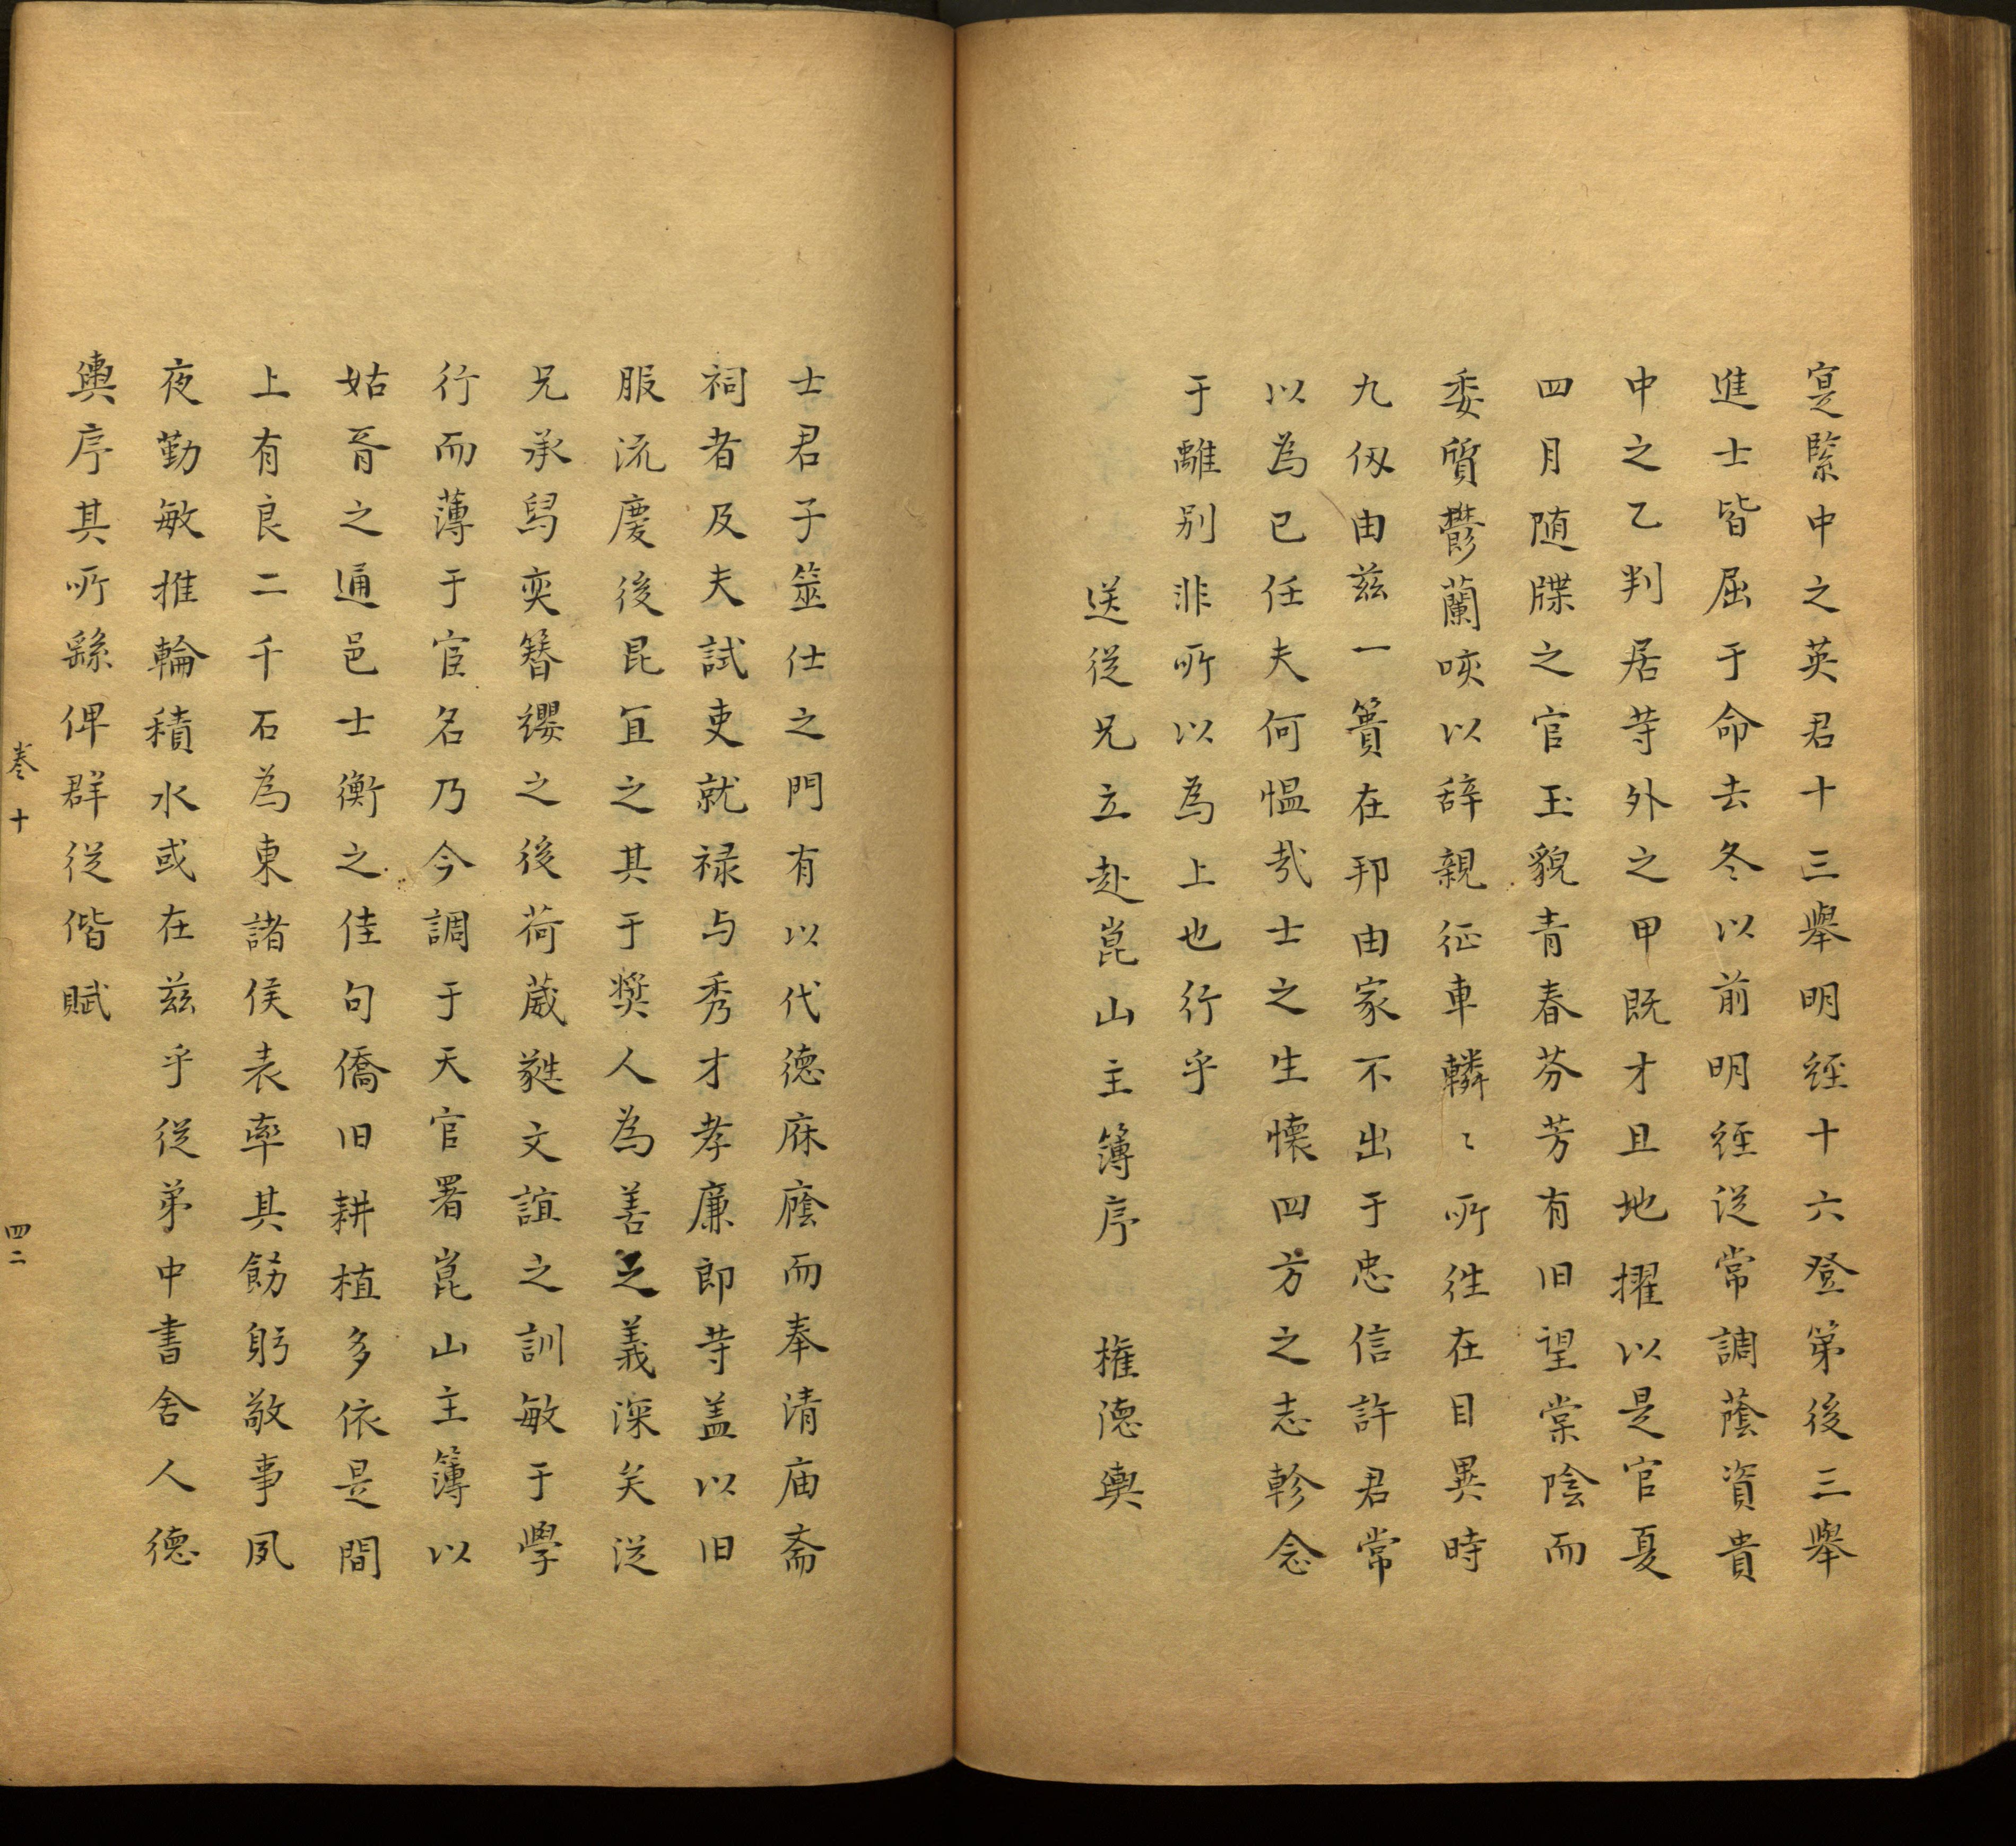 寔緊中之英君十三舉明經十六登第後三舉
進士皆屈于命去冬以前明經從常調蔭資貴
中之乙判居䓁外之甲既才且地擢以是官夏
四月随牒之官玉貌青春芬芳有旧望棠陰而
委質鬱蘭咳以辞親征車轔〻所徃在目異時
九仭由兹一簣在邦由家不出于忠信許君常
以為已任夫何愠㢤士之生懷四方之志軫念
于離别非所以為上也行乎
送從兄立赴崑山主簿序　權德輿
士君子筮仕之門有以代德庥廕而奉清庙斋
祠者及夫試吏就禄与秀才孝廉郎䓁盖以旧
服流慶後昆冝之其于奬人為善之義深矣從
兄承舄奕簪纓之後荷葳蕤文誼之訓敏于學
行而薄于宦名乃今調于天官署崑山主簿以
姑胥之通邑士衡之佳句僑旧耕植多依是間
上有良二千石為東諸侯表率其餝躬敬事夙
夜勤敏推輪積水或在兹乎從弟中書舍人德
輿序其所繇俾群從偕賦
卷十
四二